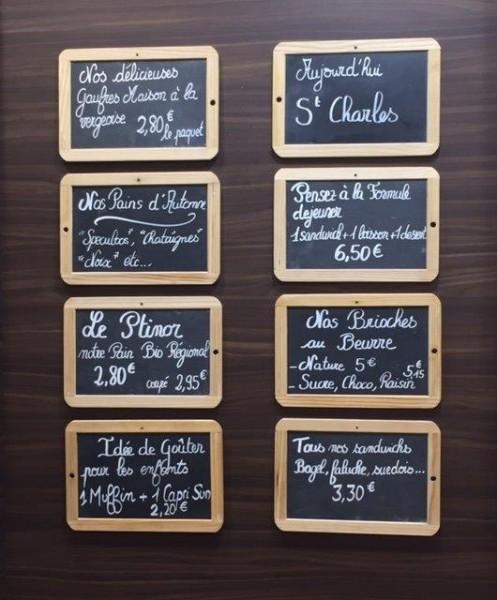 Nos délicieuses
Gaufres Maison à la
vergeoise 2,80€
le paquet
Aujourd'hui
St Charles
Nos Pains d'Automne
"Speculoos", "Chataîgnes"
"Noix" etc...
Pensez à la Formule
dejeuner
1 sandwich + 1 boisson + 1 dessert
6,50€
Le Ptinor
notre Pain Bio Régional
2,80€ coupé 2,95€
Nos Brioches
au Beurre
- Nature 5€
- Sucre, Choco, Raisin 5,15€
Idée de Goûter
pour les enfants
1 Muffin + 1 Capri Sun
2,20€
Tous nos sandwichs
Bagel, faluche, suedois...
3,30€